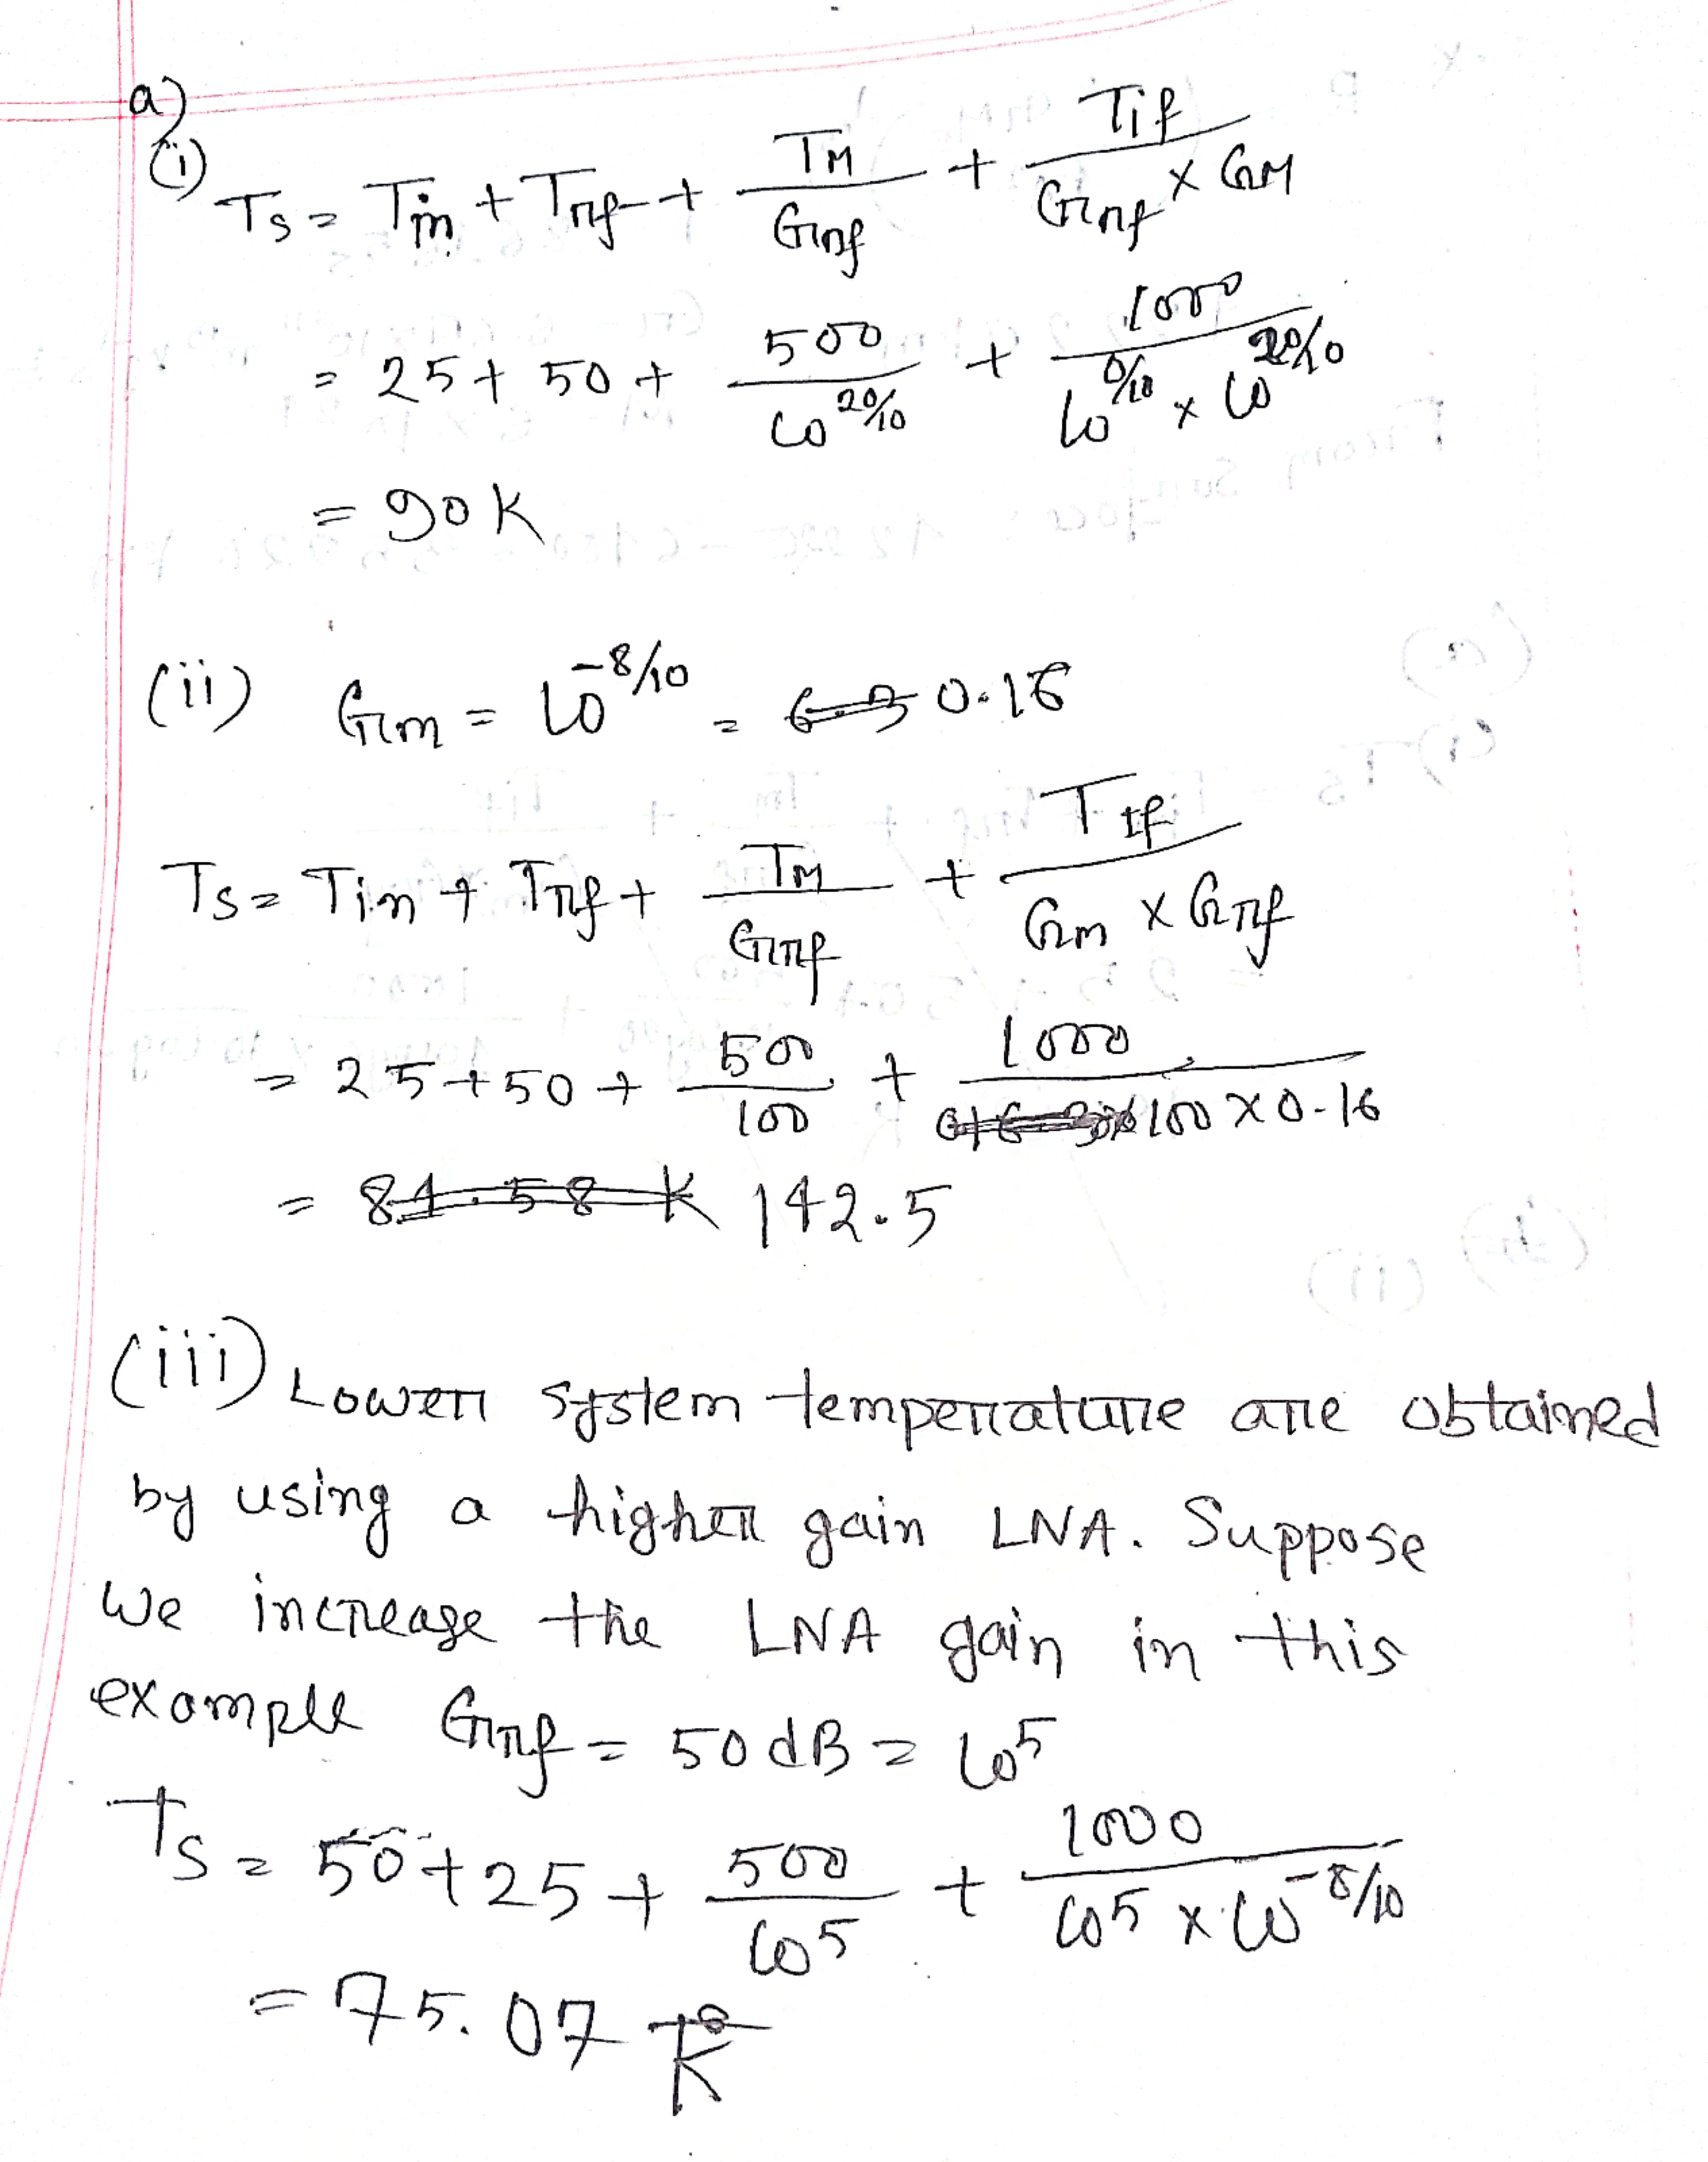 a)
(i) Ts = Tin + Trf + TM/Grf + Tif/(Grf × GM)
= 25 + 50 + 500/10^20/10 + 1000/(10^0/10 × 10^20/10)
= 90K
(ii) Gm = 10^-8/10 = 0.16
Ts = Tin + Trf + TM/Grf + TIf/(Gm × Grf)
= 25 + 50 + 500/100 + 1000/(100 × 0.16)
= 142.5
(iii) Lower system temperature are obtained
by using a higher gain LNA. Suppose
We increase the LNA gain in this
example Grf = 50dB = 10^5
Ts = 50 + 25 + 500/10^5 + 1000/(10^5 × 10^-8/10)
= 75.07 K